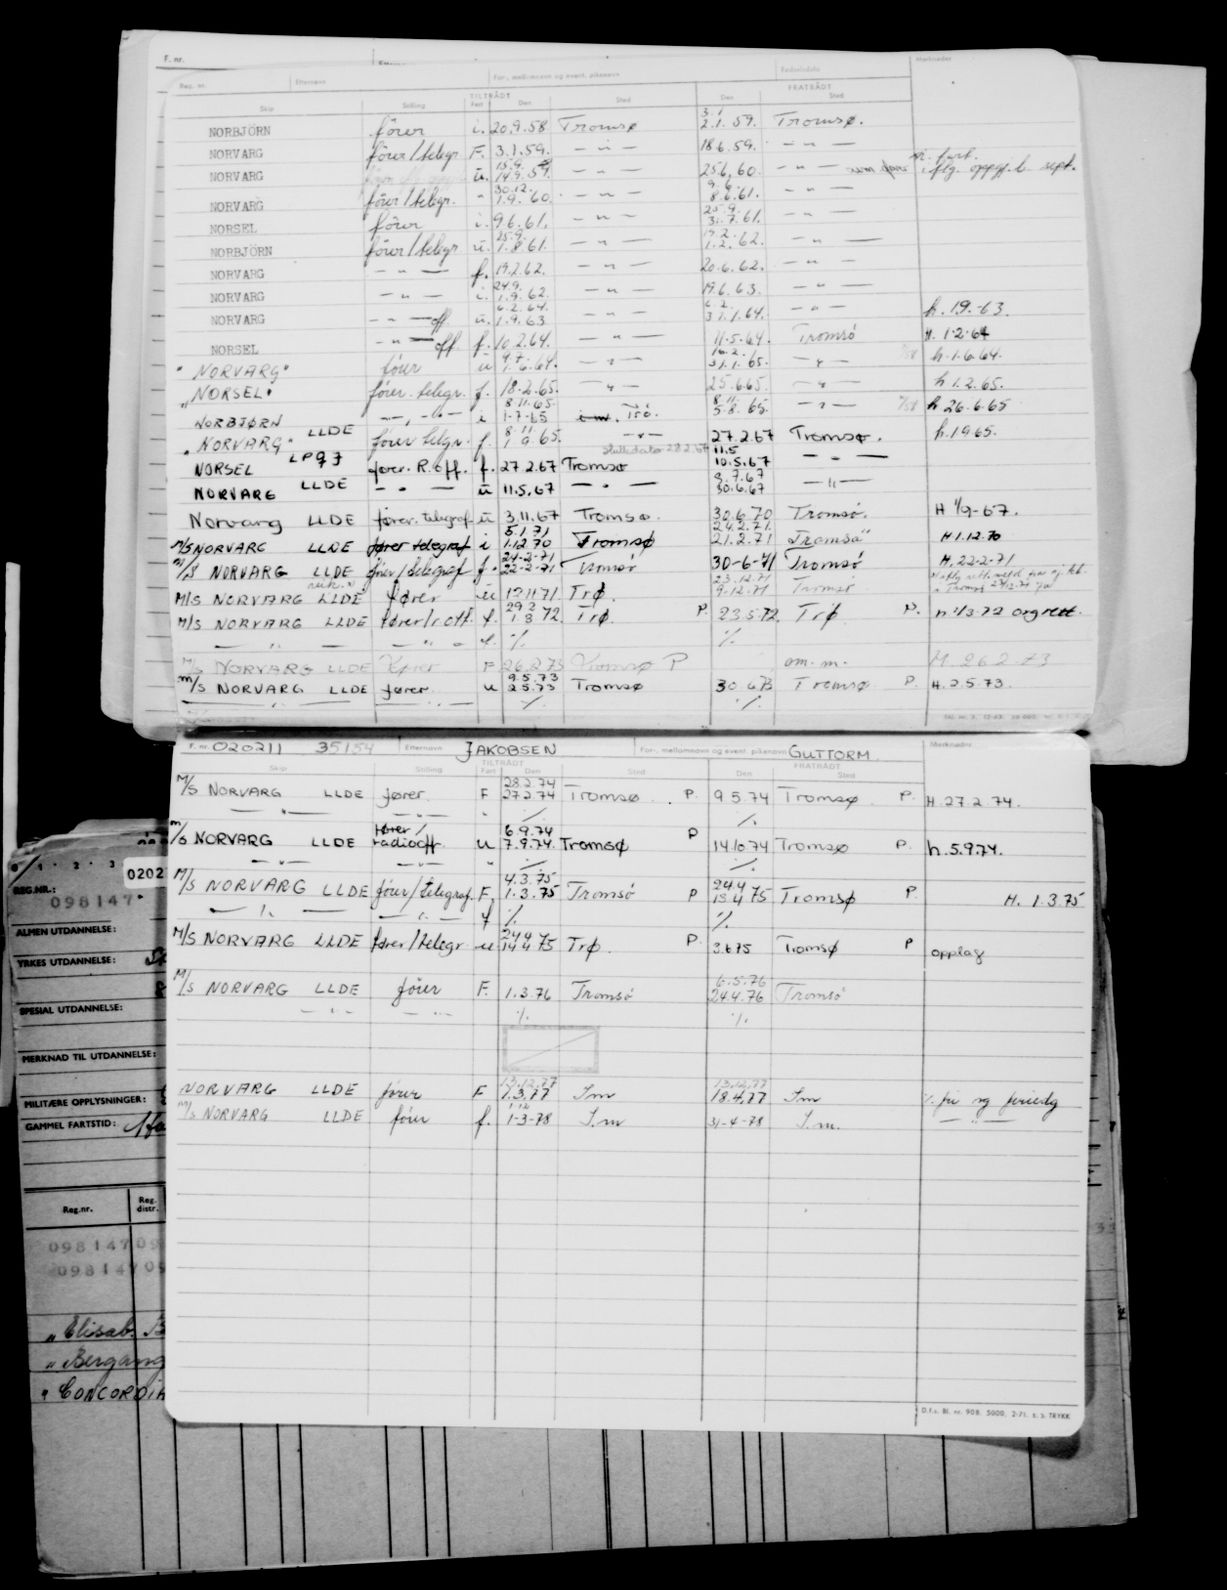 F. nr.
Reg. nr. Efternavn For-, mellomnavn og event. pikenavn Fødselsdato Merknader
Skip Stilling TILTRÅDT Fart Den Sted FRATRÅDT Den Sted
NORBJÖRN förer i. 20.9.58 Tromsø 3.1 2.1.59. Tromsø.
NORVARG förer/telegr. F. 3.1.59. — " — 18.6.59. — " —
NORVARG u. 15.9. 14.9.59. — " — 25.6.60. — " — iflg. oppg. b. sept.
NORVARG förer/telegr. " 30.12. 1.9.60. — " — 9.6. 8.6.61. — " —
NORSEL förer i. 9.6.61. — " — 25.9. 31.7.61. — " —
NORBJÖRN förer/telegr u. 25.9. 1.8.61. — " — 19.2. 1.2.62. — " —
NORVARG — " — f. 19.2.62. — " — 20.6.62. — " —
NORVARG — " — i. 24.9. 1.9.62. — " — 19.6.63. — " —
NORVARG — " — off. u. 6.2.64. 1.9.63 — " — 6.2. 31.1.64. — " — h. 1.9.-63.
NORSEL — " — off. f. 10.2.64. — " — 11.5.64. Tromsö H. 1.2.64
"NORVARG" förer u 9.7. 1.6.64. — " — 16.2. 31.1.65. — " — h. 1.6.64.
"NORSEL" förer. telegr. f. 18.2.65. — " — 25.6.65. — " — h 1.2.65.
NORBJØRN LLDE — " — i 8.11.65. 1-7-65 Trö. 8.11. 5.8.65. — " — h 26.6.65
"NORVARG" LPQJ förer telgr. f. 8.11. 1.9.65. — " — 27.2.67 Tromsø. h. 1.9.65.
NORSEL LLDE fører. R.off. f. 27.2.67 Tromsø 11.5 10.5.67 — " —
NORVARG — " — u 11.5.67 — " — 8.7.67 30.6.67 — " —
Norvarg LLDE fører. telegraf u 3.11.67 Tromsø. 30.6.70 Tromsø. H 1/9-67.
M/S NORVARG LLDE fører telegraf i 5.1.71 1.12.70 Tromsø 24.2.71. 21.2.71 Tromsø H 1.12.70
M/S NORVARG LLDE förer/telegraf f. 24-2-71 22-2-71 Tromsö 30-6-71 Tromsö H. 22-2-71
M/S NORVARG LLDE fører u 12.11.71 Trø. 23.12.71 9.12.71 Tromsö
M/S NORVARG LLDE fører/r.off. f. 29.2 1.3.72. Trø P. 23.5.72. Trø P. h 1/3-72 org rett.
— " — — " — f. % %
M/S NORVARG LLDE Fører F 26.2.73 Tromsø P om. m. H. 26.2.73
M/S NORVARG LLDE fører u 9.5.73 2.5.73 Tromsø 30.6.73 Tromsø P. H. 2.5.73.
— " — — " — % %
F. nr. 020211 35154 Efternavn JAKOBSEN For-, mellomnavn og event. pikenavn GUTTORM Merknader
Skip Stilling TILTRÅDT Fart Den Sted FRATRÅDT Den Sted
M/S NORVARG LLDE fører. F 28.2.74 27.2.74 Tromsø. P. 9.5.74 Tromsø P. H. 27.2.74.
— " — — " — " % %
M/S NORVARG LLDE fører/ radiooff. u 6.9.74 7.9.74. Tromsø P 14.10.74 Tromsø P. h. 5.9.74.
— " — — " — " % %
M/S NORVARG LLDE förer/telegraf. F. 4.3.75 1.3.75 Tromsö P 24.4 13.4.75 Tromsø P. H. 1.3.75
— " — — " — f % %
M/S NORVARG LLDE fører/telegr. u 24.4.75 14.4.75 Trø. P. 3.6.75 Tromsø P opplag
M/S NORVARG LLDE förer F. 1.3.76 Tromsö 6.5.76 24.4.76 Tromsö
— " — — " — % %
NORVARG LLDE förer F 13.12.77 1.3.77 I.m 13.12.77 18.4.77 I.m
M/S NORVARG LLDE förer f. 1-3-78 I.m 31-4-78 I.m. — " —
D.f.s. Bl. nr. 908. 5000. 2-71. S. S. TRYKK
0 1 2 3
REG.NR.: 0202
098147
ALMEN UTDANNELSE:
YRKES UTDANNELSE:
SPESIAL UTDANNELSE:
MERKNAD TIL UTDANNELSE:
MILITÆRE OPPLYSNINGER:
GAMMEL FARTSTID:
Reg.nr. Reg. distr.
098147 09
098147 09
" Elisab. B
" Bergang
" CONCORDIA